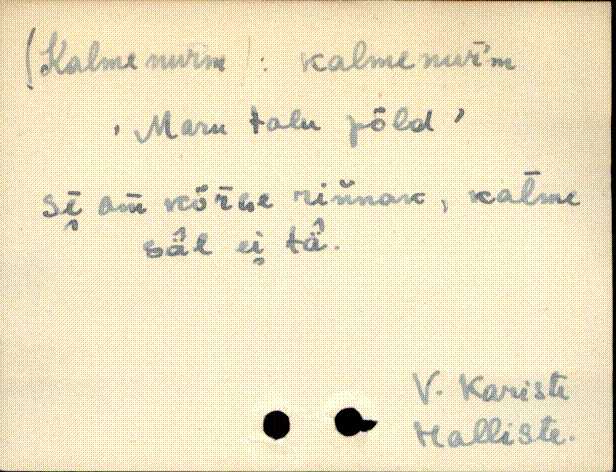 (Kalmenurm): kalmenur̄'m
‚ Maru talu põld ’
sē̬ om̄ kõr̄ge rin̆nak, kal̄me
sä̂l ei̬ tä̂.
V. Kariste
Halliste.